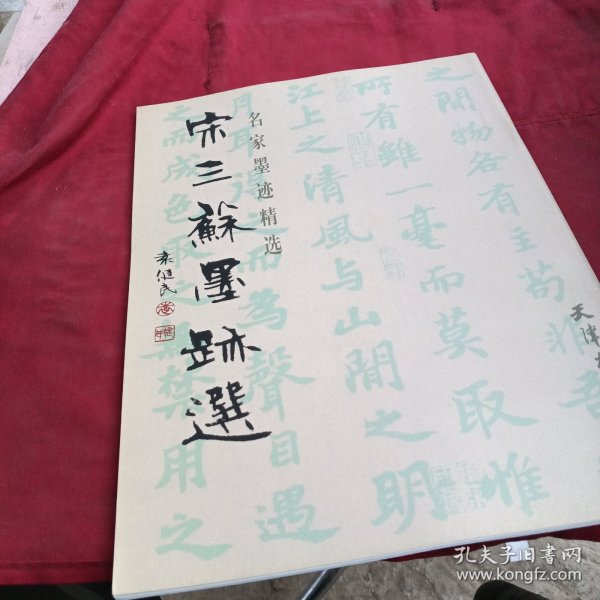 之間物各有主苟非吾
所有雖一毫而莫取惟
江上之清風与山間之明
月之而為聲目遇
之而成色取之無禁用之
名家墨迹精选
宋三蘇墨跡選
天津
孔夫子旧书网
www.kongfz.com